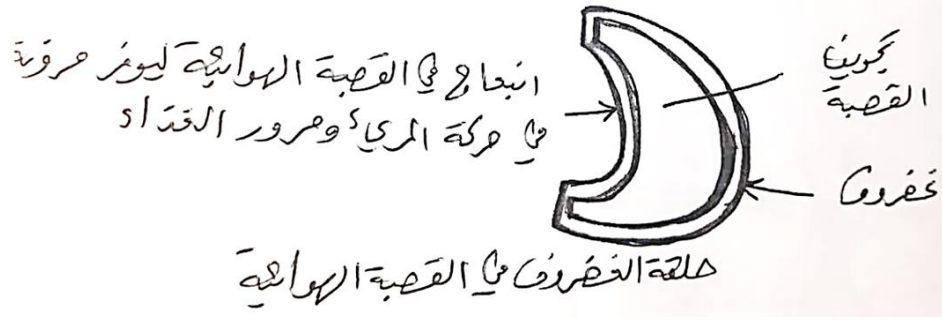 انبعاج في القصبة الهوائية ليوفر مرونة
في حركة المريء ومرور الغذاء
تجويف
القصبة
غضروف
حلقة الغضروف في القصبة الهوائية